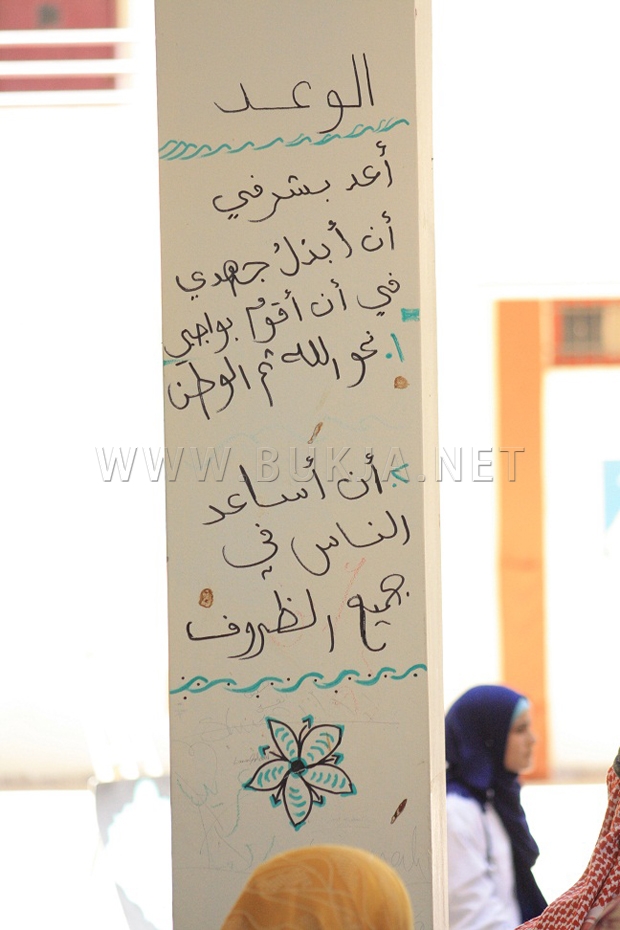 الوعد
أعد بشرفي
أن أبذلُ جهدي
في أن أقومُ بواجبي
1. نحو الله ثم الوطن
WWW.BUKJA.NET
2. أن أساعد
الناس في
جميع الظروف